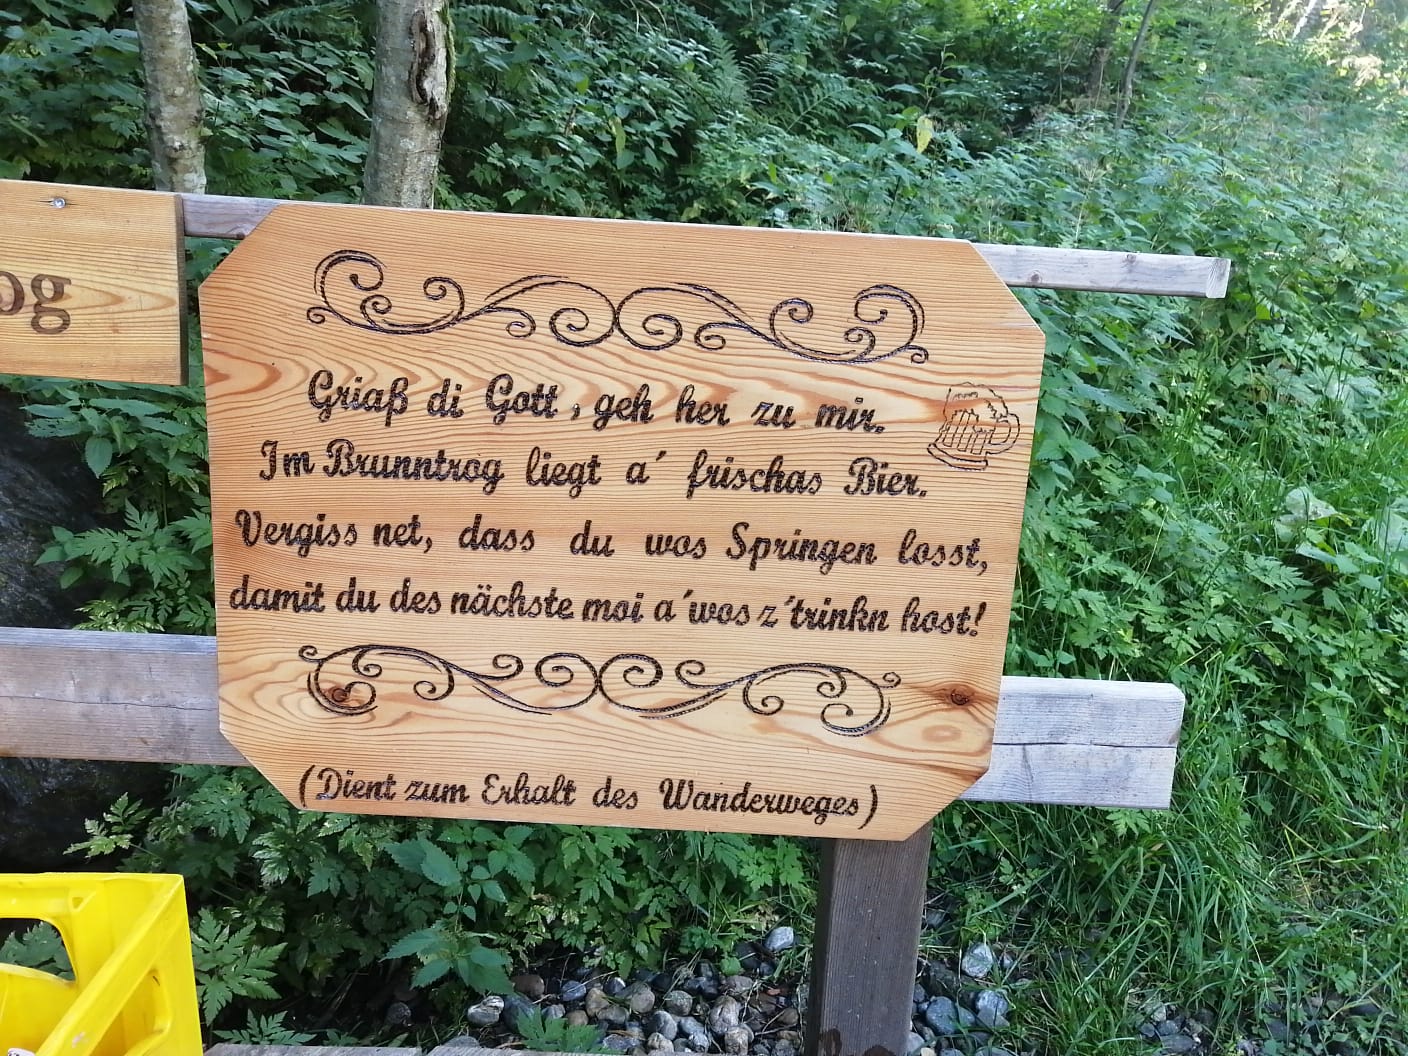 og
Griaß di Gott, geh her zu mir.
Im Brunntrog liegt a´ frischas Bier.
Vergiss net, dass du wos Springen losst,
damit du des nächste moi a´wos z´trinkn host!
(Dient zum Erhalt des Wanderweges)